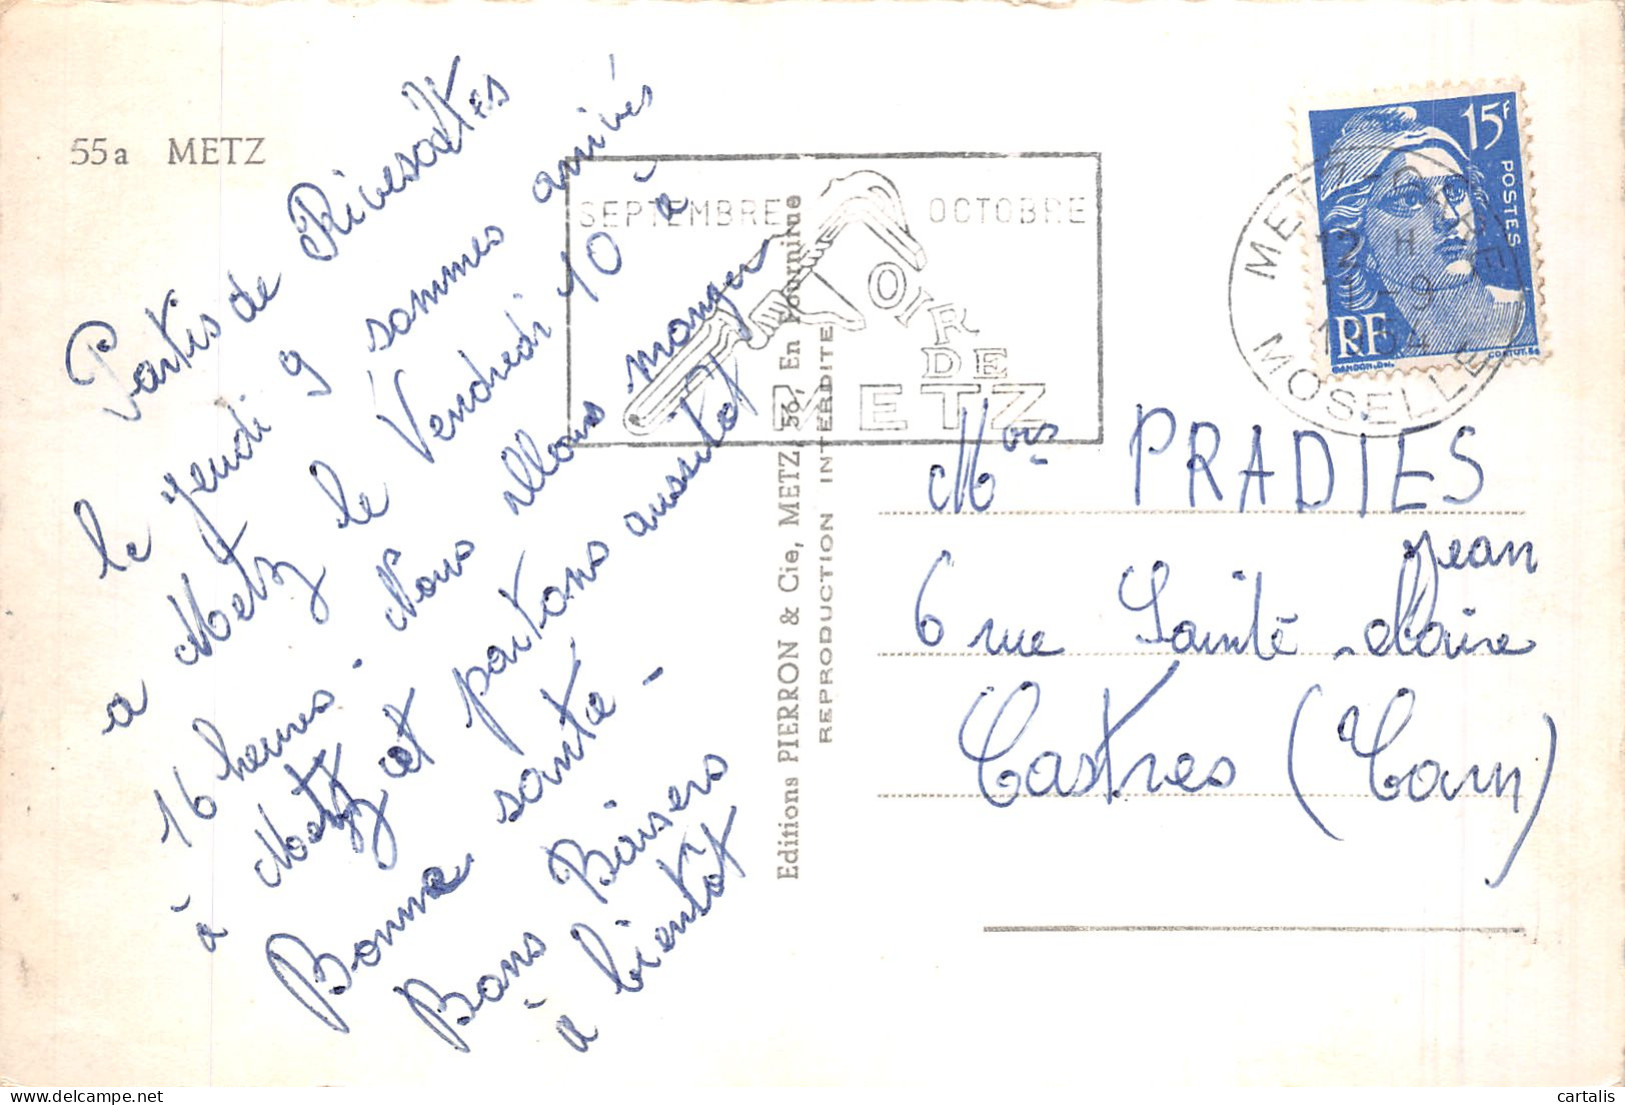 55a METZ
Partis de Rivesaltes
le jeudi 9 sommes arrivés
a Metz le Vendredi 10 à
16 heures. Nous allons manger
à Metz et partons aussitot
Bonne santé -
Bons Baisers
à bientôt
SEPTEMBRE OCTOBRE
FOIR
DE
METZ
Editions PIERRON & Cie, METZ, 56, En Fournirue
REPRODUCTION INTERDITE
15F
POSTES
RF
GANDON.DEL.
CORTOT.SC
METZ-GARE
12 H
11-9
1954
MOSELLE
Mrs PRADIES
Jean
6 rue Sainte-Claire
Castres (Tarn)
cartalis